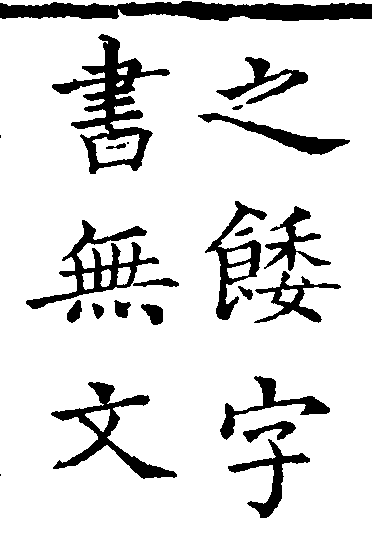 之餧字
書無文